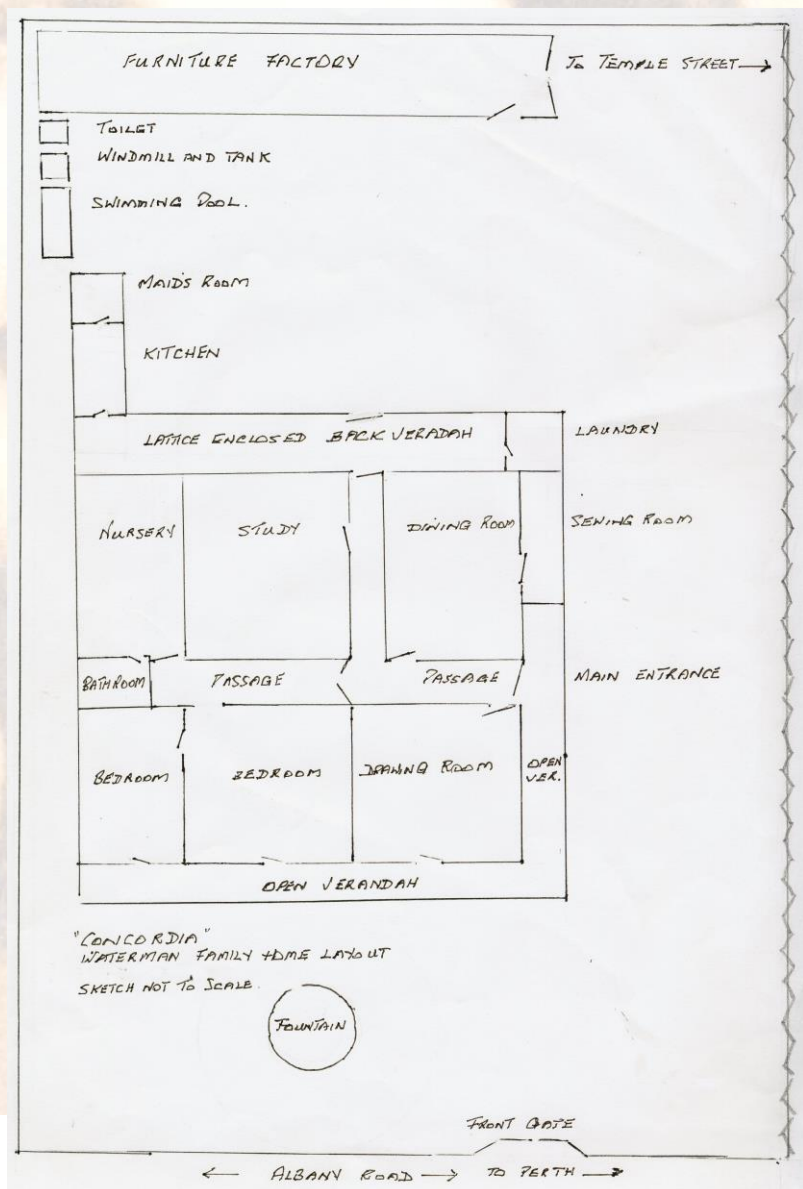 FURNITURE FACTORY
To TEMPLE STREET →
TOILET
WINDMILL AND TANK
SWIMMING POOL.
MAID'S ROOM
KITCHEN
LATTICE ENCLOSED BACK VERADAH
LAUNDRY
NURSERY
STUDY
DINING ROOM
SEWING ROOM
BATHROOM
PASSAGE
PASSAGE
MAIN ENTRANCE
BEDROOM
BEDROOM
DRAWING ROOM
OPEN
VER.
OPEN VERANDAH
"CONCORDIA"
WATERMAN FAMILY HOME LAYOUT
SKETCH NOT To SCALE.
FOUNTAIN
FRONT GATE
← ALBANY ROAD → TO PERTH →